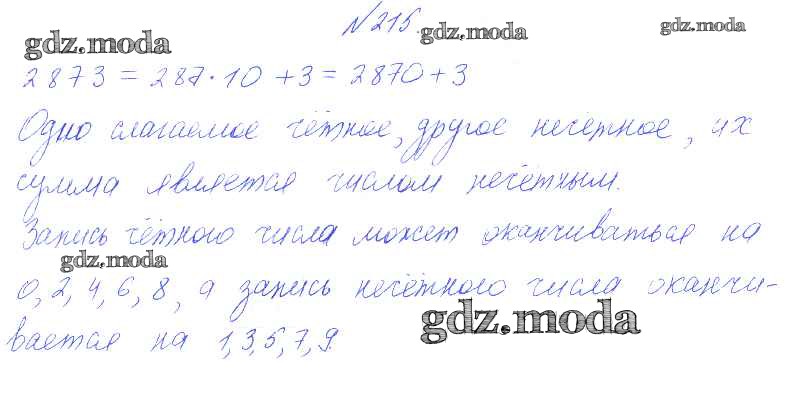 №215.
gdz.moda
gdz.moda
gdz.moda
2873 = 287·10 + 3 = 2870 + 3
Одно слагаемое чётное, другое нечетное, их
сумма является числом нечётным.
Запись чётного числа может оканчиваться на
gdz.moda
0, 2, 4, 6, 8, а запись нечётного числа оканчи-
gdz.moda
вается на 1, 3, 5, 7, 9.